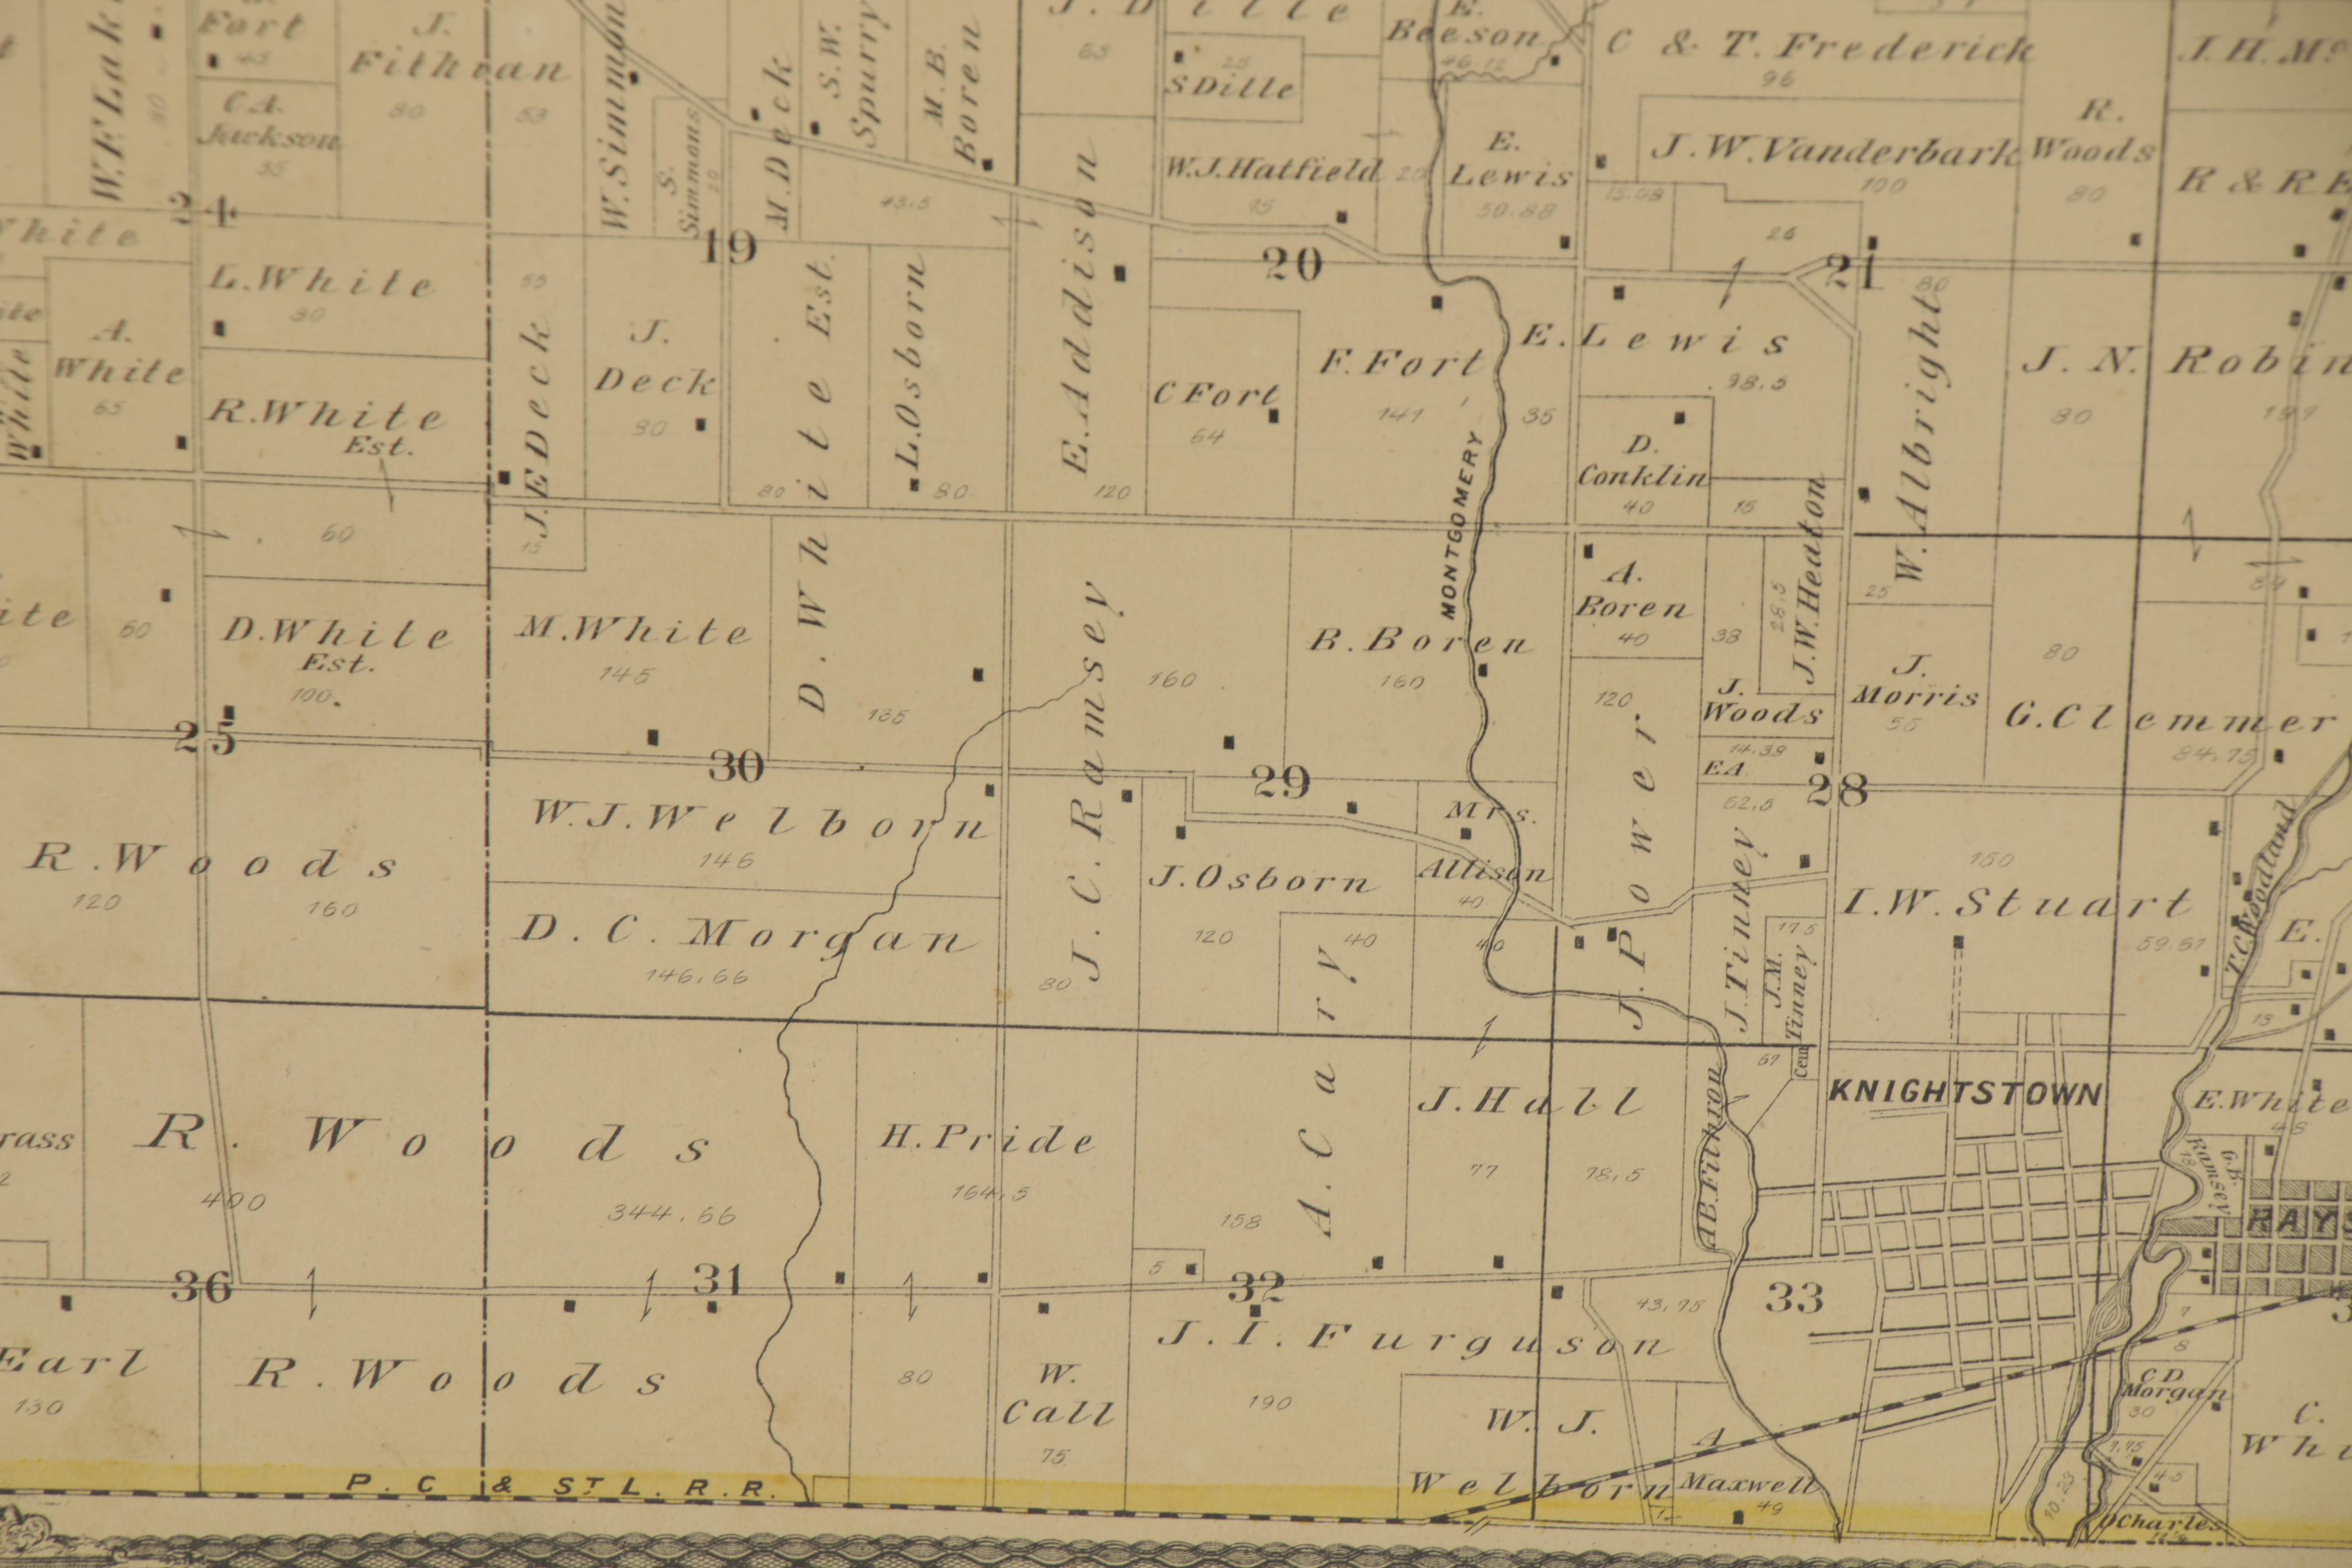 W.F.Lak
80
Fort
43
C.A.
Jackson
35
J.
Fithian
80
53
W.Simmon
S.
Simmons
20
M.Deck
S.W.
Spurry
M.B.
Boren
43.5
J. Dille
63
25
S Dille
W.J.Hatfield
95
20
E.
Beeson
46.12
E.
Lewis
50.88
C & T. Frederick
96
J.W.Vanderbark
100
15.03
26
R.
Woods
80
J.H.Mc
R & R E
24
19
20
21
White
L.White
80
A.
White
65
White
R.White
Est.
60
55
J.E Deck
15
J.
Deck
80
D. White Est.
80
135
L.Osborn
80
E.Addison
120
C Fort
64
F.Fort
141
MONTGOMERY
35
E.Lewis
98.5
D.
Conklin
40
15
W. Albright
80
25
J. N. Robin
80
60
D.White
Est.
100.
M.White
145
J.C.Ramsey
160
80
B.Boren
160
A.
Boren
40
38
28.5
J.W.Heaton
J.
Woods
14.39
EA
62.5
J.
Morris
G.Clemmer
80
84.75
25
30
29
28
R.Woods
120
160
W.J.Welborn
146
D. C. Morgan
146.66
J.Osborn
120
Mrs.
Allison
40
40
40
J. Power
120
J.Tinney
J.M.
Tinney
17.5
Cem
I.W.Stuart
150
59.67
T.C.Woodland
E.
13
rass
R. Woods
400
344.66
H.Pride
164.5
80
A.Cary
158
5
J.Hall
77
78.5
A.E.Fithron
KNIGHTSTOWN
E.White
48
G.B.
Ramsey
RAYS
36
31
32
33
Earl
130
R.Woods
W.
Call
75
J.I.Furguson
190
43.75
W. J.
Welborn
A
Maxwell
49
7
8
C D
Morgan
30
7.75
4.5
10.23
C.
Whi
O Charles
P. C & ST L. R.R.